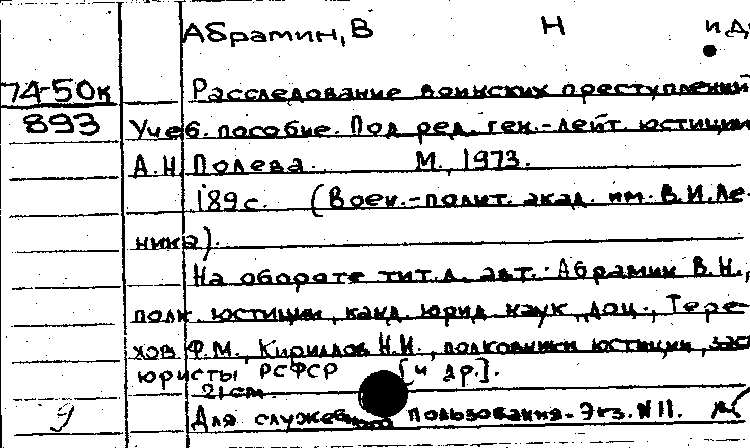 Абрамин, В Н и др
74-50к Расследование воинских преступлений
893 Учеб. пособие. Под ред. ген.-лейт. юстиции
А.Н Полева. М., 1973.
189 с. (Воен.-полит. акад. им. В.И.Ле-
нина).
На обороте тит.л. авт.: Абрамин В.Н.,
полк. юстиции, канд. юрид. наук, доц., Тере-
хов Ф.М., Кириллов Н.И., полковники юстиции, зас
юристы РСФСР [и др.].
21 см.
9 Для служебного пользования. Экз. №11.